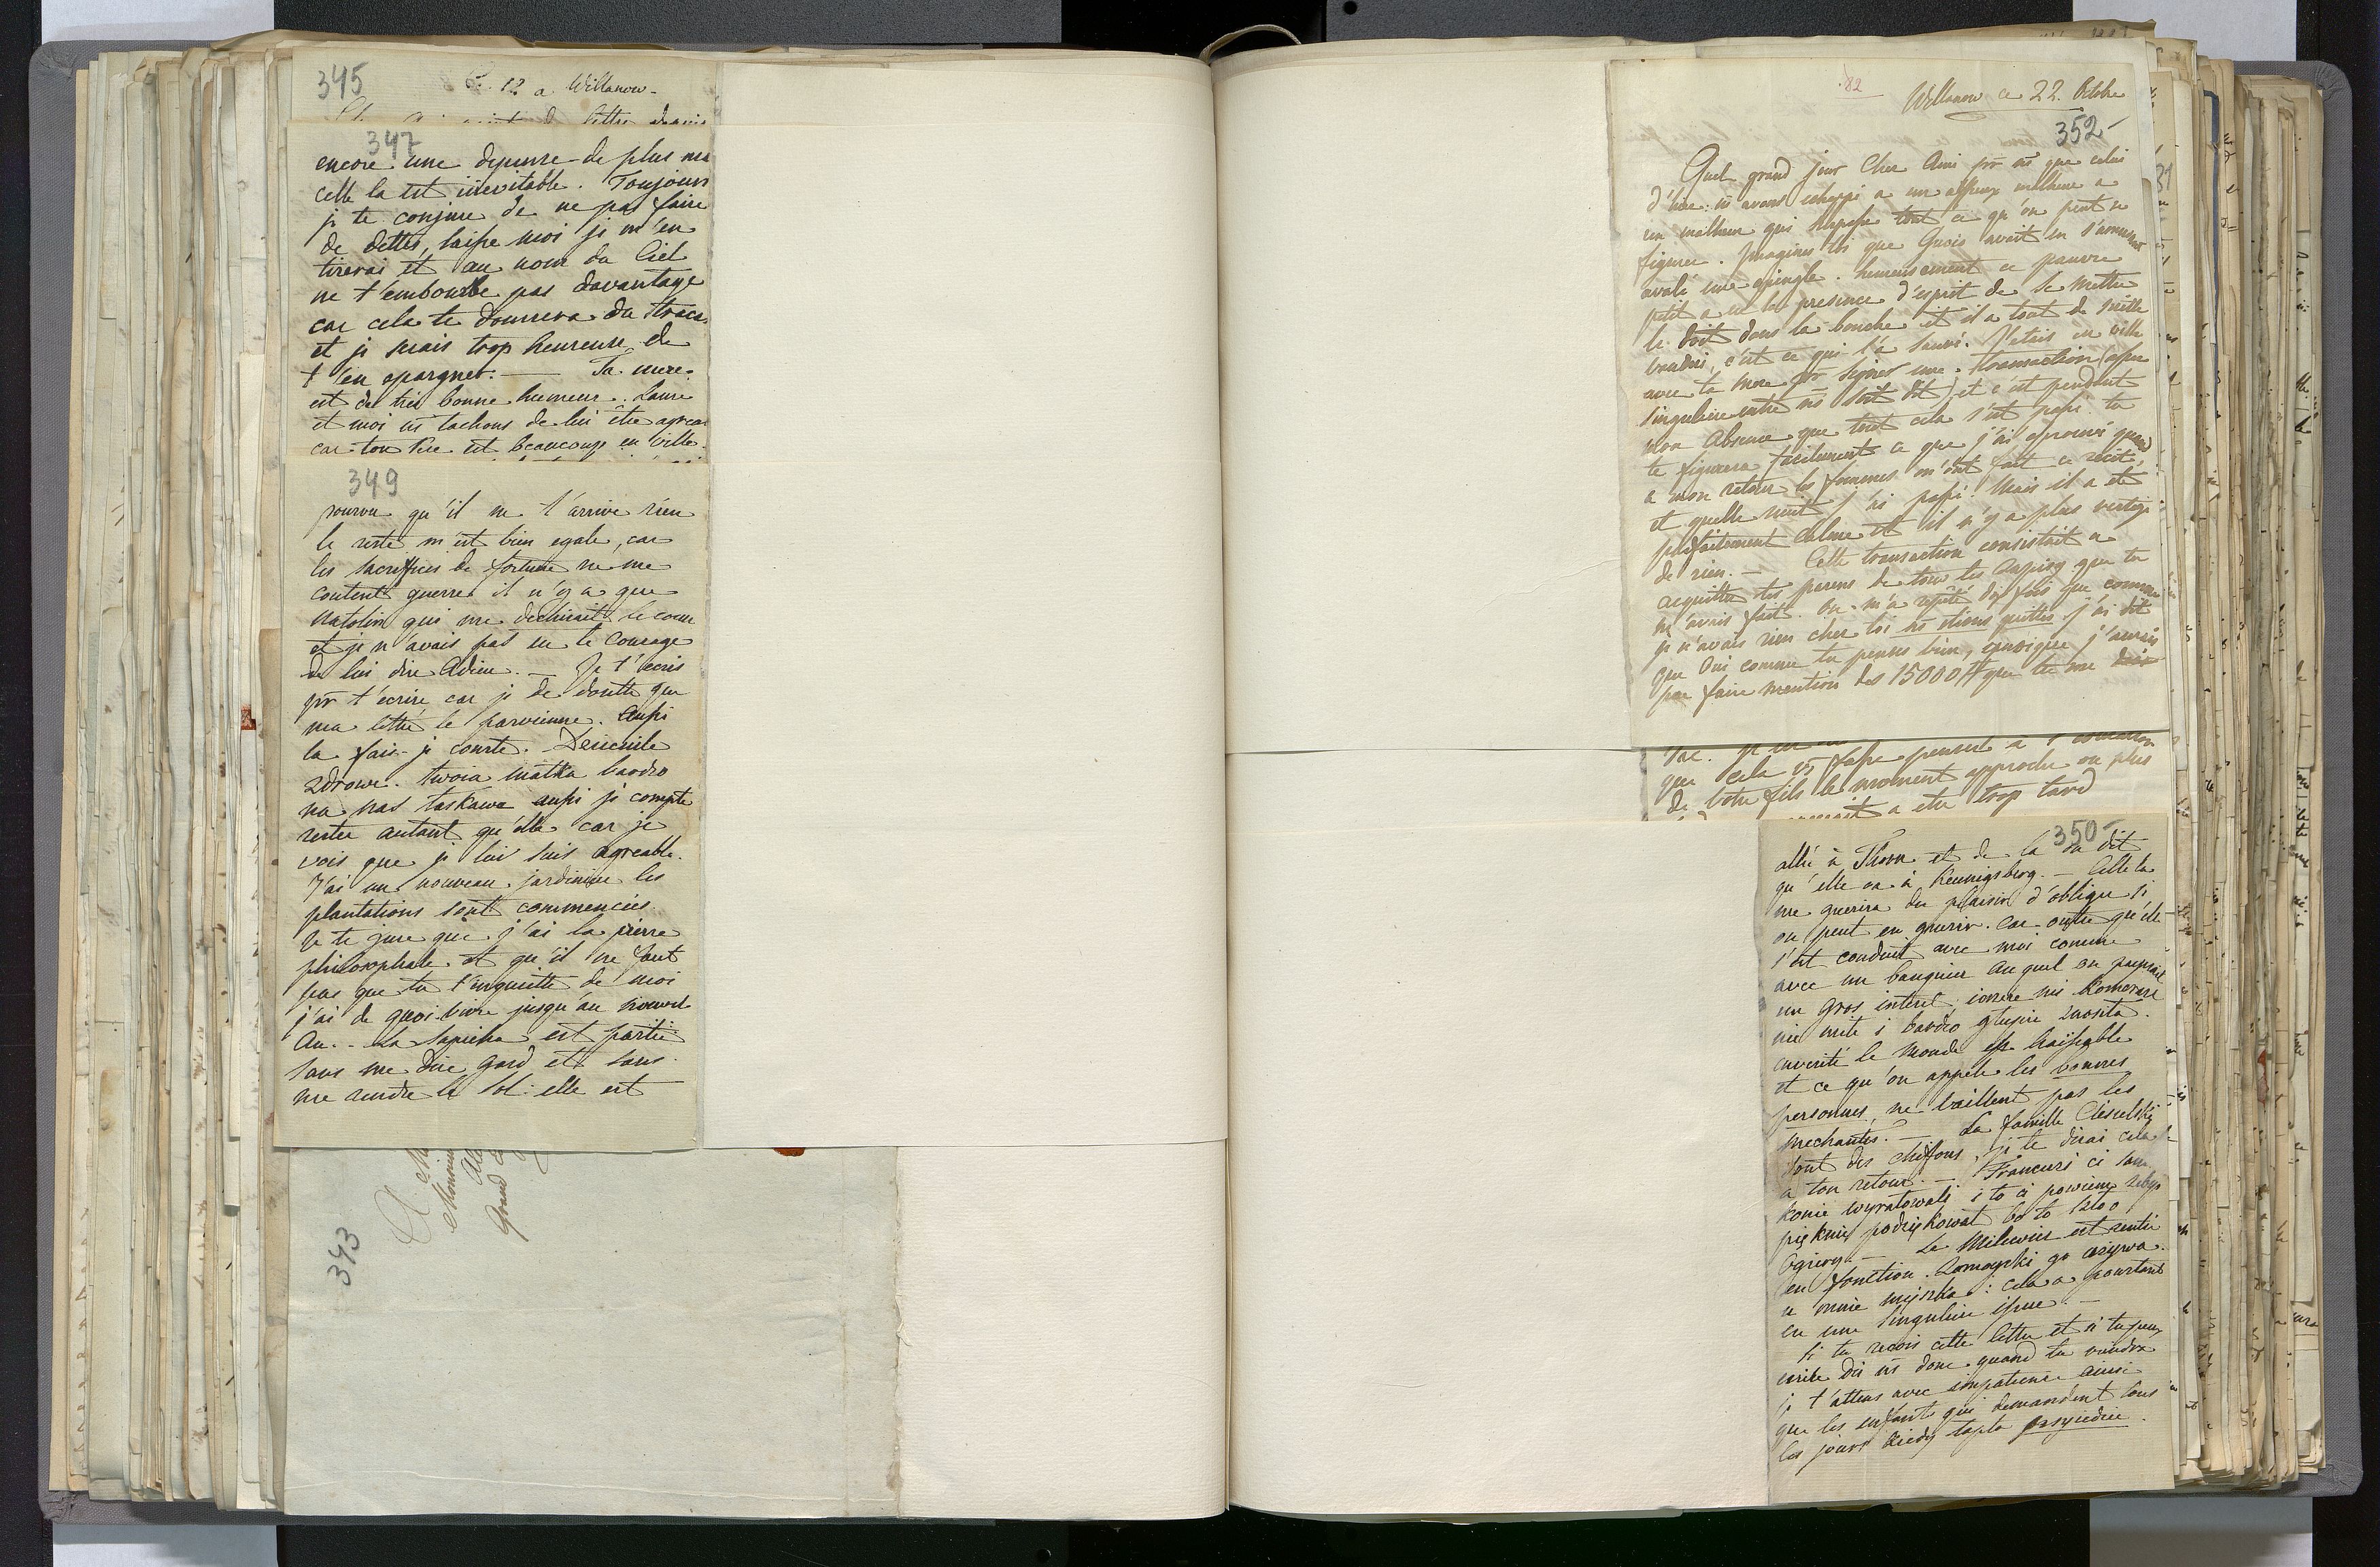 345
12 a Willanow
lettre
347
encore une depense de plus ma
celle la est inevitable. Toujours
je te conjure de ne pas faire
de dettes, laisse moi je m'en
tirerai et au nom du Ciel
ne t'embourbe pas davantage
car cela te donnera du traca
et je serais trop heureuse de
t'en epargner. — Ta mere
est de très bonne humeur. Laure
et moi ns tachons de lui être agrea
car ton Pere est beaucoup en ville.
349
pourvu qu'il ne t'arrive rien
le reste m'est bien egale, car
les sacrifices de fortune ne me
coutent guerre il n'y a que
Natolin qui me dechirait le coeur
et je n'avais pas eu le courage
de lui dire Adieu. — Je t'ecris
pr t'écrire car je de doutte que
ma lettre te parvienne. Aussi
la fais-je courte.
zdrowe. twoia matka bardzo
na nas łaskawa aussi je compte
rester autant qu'elle car je
vois que je lui suis agreable.
J'ai un nouveau jardinier les
plantations sont commencées.
Je te jure que j'ai la pierre
philosophale et qu'il ne faut
pas que tu t'inquiette de moi
j'ai de quoi vivre jusqu'au nouvel
An. — La Sapieha est partie
sans me dire gard et sans
me rendre le sol: elle est
343
A
Grand
82
Willanow ce 22. Octobre
352-
Quel grand jour Cher Ami pr ns que celui
d'hier: ns avons echappé a un affreux malheur a
un malheur qui surpasse tout ce qu'on peut se
figurer. Imagines toi que Gucio avait en s'amusant
avalé une epingle. heureusement ce pauvre
petit a eu la presence d'esprit de se mettre
le doit dans la bouche et il a tout de suitte
c'est ce qui l'a sauvé. J'etais en ville
avec ta mere pr signer une transaction assez
singuliere entre ns soit dit et c'est pendant
mon absence que tout cela s'est passé. tu
te figurera facilement ce que j'ai eprouvé quand
a mon retour les femmes m'ont fait ce recit,
et quelle nuit j'ai passé! Mais il a eté
parfaitement calme et il n'y a plus vestige
de rien. — Cette transaction consistait a
acquitter tes parens de tous les que tu
m'avais fait. On m'a repeté dix fois que comme
je n'avais rien cher toi ns etions quittes j'ai dit
que Oui comme tu penses bien, quoique j'aurais
pu faire mention des 15000 # que tu me dois
que cela vs fasse penser a l'education
de votre fils le moment approche ou plus
a etre trop tard
350-
allé à Thorn et de la on dit
qu'elle va à Kenuigsberg. — Celle la
me guerira du plaisir d'obliger si
on peut en guerir. car outre qu'elle
s'est conduit avec moi comme
avec un banquier auquel on payerait
un gros interet
nie mile i bardzo głupie
en verité le monde est haissable
et ce qu'on appele les bonnes
personnes, ne vaillent pas les
mechantes. — La famille Ciesielski
sont des chiffons, je te dirai cela
a ton retour. — Francuzi ci sam
konie wyratowali i to ci powiem zebys
pięknie podziękował bo to 1200
Ogiery. — Le Milewicz est rentré
en fonction. Zamoyski go nazywa
: cela a pourtant
eu une singuliere issue. —
Si tu recois cette lettre et si tu peux
ecrire dis ns donc quand tu viendra
je t'attens avec impatience ainsi
que les enfants qui demandent tous
les jours kiedy tapta przyiedzie.